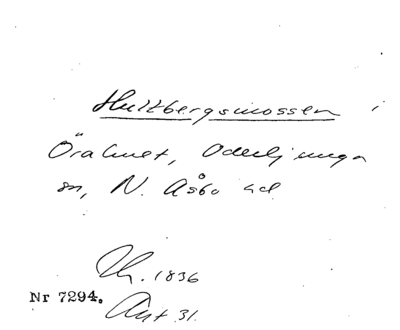 Hultbergsmossen i
Öraholmet, Oderljunga
sn, N. Åsbo hd
Th. 1836
Nr 7294. Ant 31.